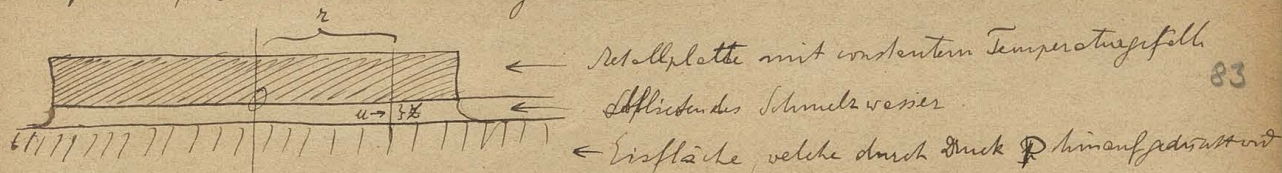 r
Metallplatte mit constantem Temperaturgefälle
83
Abfließendes Schmelzwasser
u → } z
Eisfläche, welche durch Druck P hinaufgedrückt wird